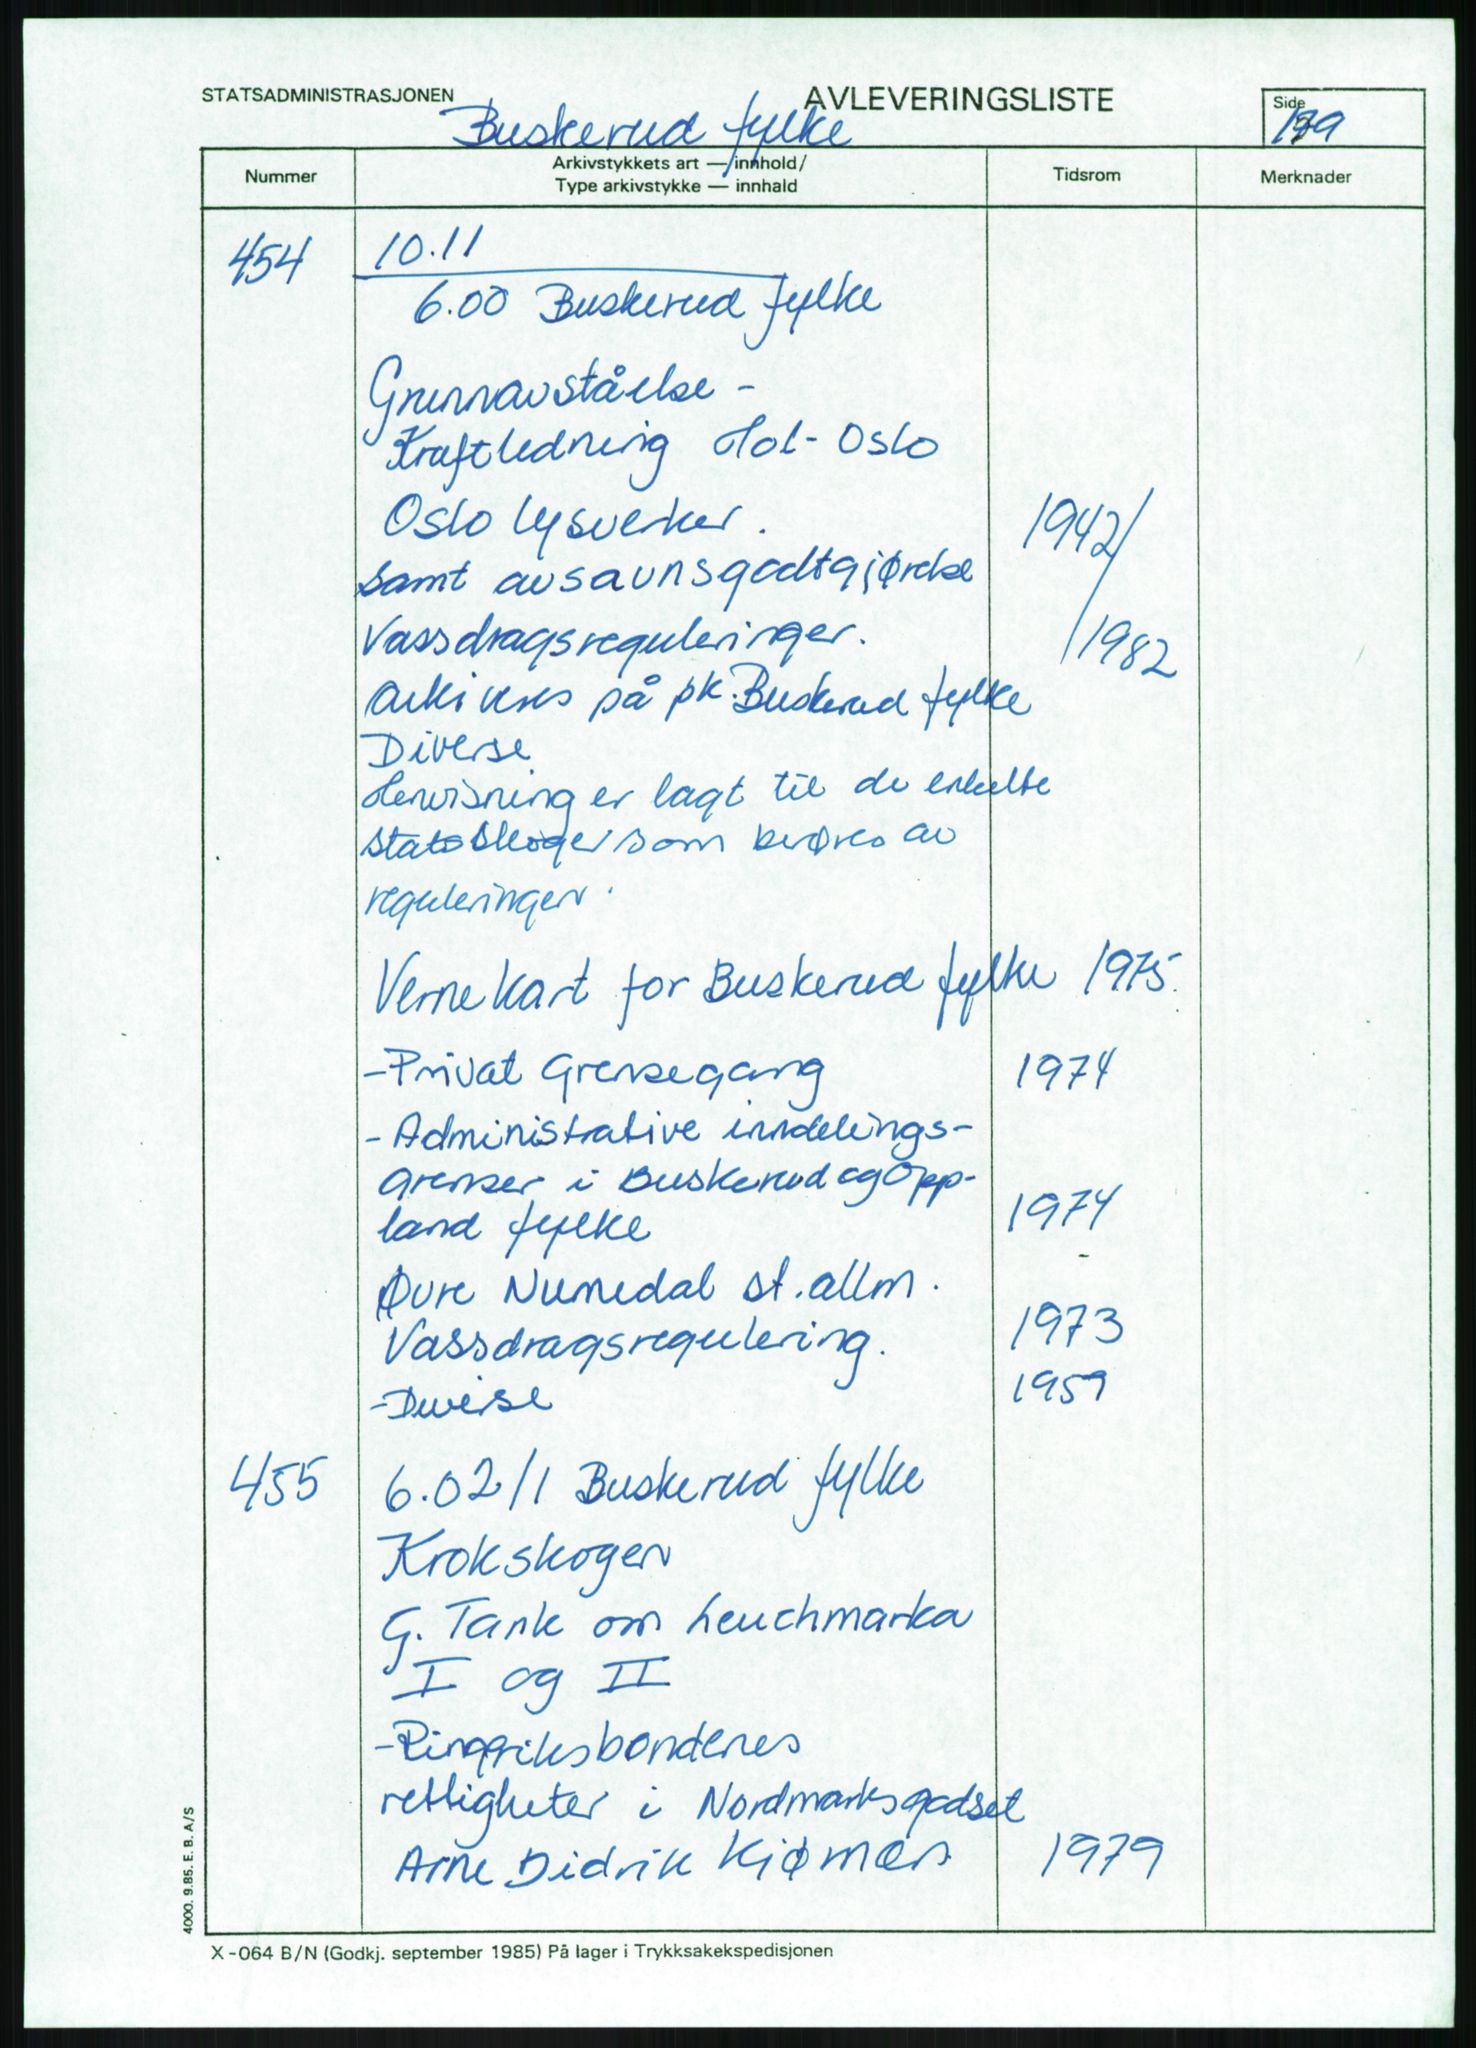 STATSADMINISTRASJONEN
AVLEVERINGSLISTE
Side
Buskerud fylke
Nummer
Arkivstykkets art — innhold/
Type arkivstykke — innhald
Tidsrom
Merknader
454
10.11
6.00 Buskerud fylke
Grunnavståelse -
Kraftledning Hol - Oslo
Oslo lysverker.
1942/
samt avsavnsgodtgjørelse
Vassdragsreguleringer.
/1982
arkiveres på pk. Buskerud fylke
Diverse
Henvisning er lagt til de enkelte
statsskoger som berøres av
reguleringen.
Vernekart for Buskerud fylke 1975.
- Privat Grensegang 1974
- Administrative inndelings-
grenser i Buskerud og Opp-
land fylke 1974
Øvre Numedal st. allm.
Vassdragsregulering. 1973
- Diverse 1959
455 6.02/1 Buskerud fylke
Krokskogen
G. Tank om Leuchmarka
I og II
- Ringriksbøndenes
rettigheter i Nordmarksgodset
Arne Didrik Kjørnæs 1979
4000. 9.85. E. B. A/S
X-064 B/N (Godkj. september 1985) På lager i Trykksakekspedisjonen